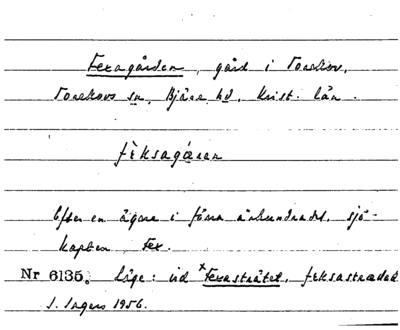 Fexagården, gård i Torekov,
Torekovs sn, Bjäre hd, Krist. län.
fèksagá̱ren
Efter en ägare i förra århundradet, sjö-
kapten Fex.
Nr 6135. Läge: vid *Fexasträtet, feksastrædəd
I. Ingers 1956.